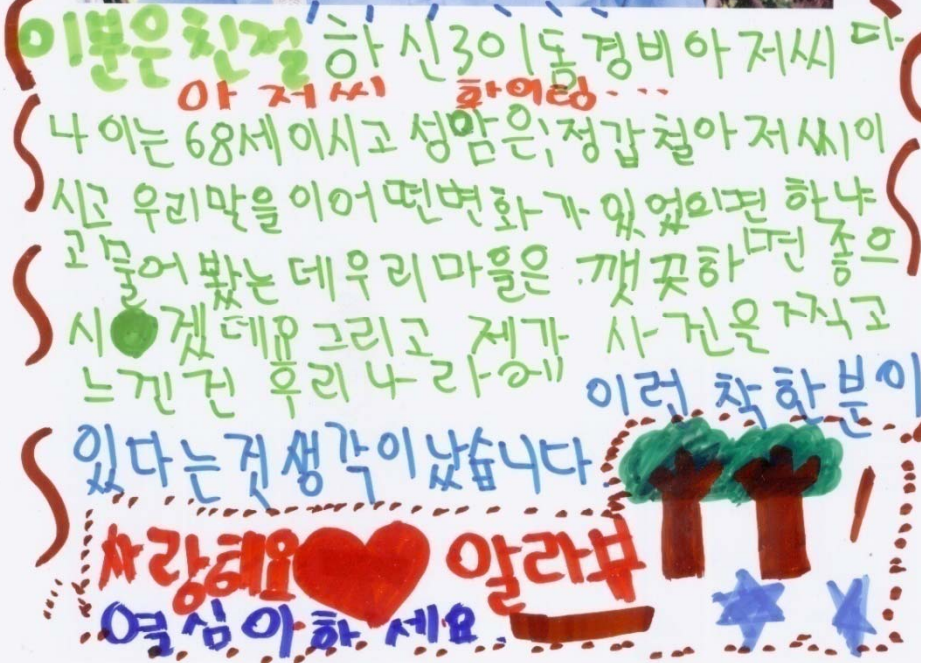 이분은 친절하신 301동 경비아저씨 다
아저씨 화이팅...
나이는 68세이시고 성함은, 정갑철아저씨이
시고 우리말을 이어떤변화가 있었으면 하냐
고 물어봤는데 우리마을은 깻끗하면 좋으
시겠데요 그리고 제가 사진을 찍고
느낀건 우리나라에 이런 착한분이
있다는것 생각이났습니다
사랑해요 알라뷰
열심이하세요.